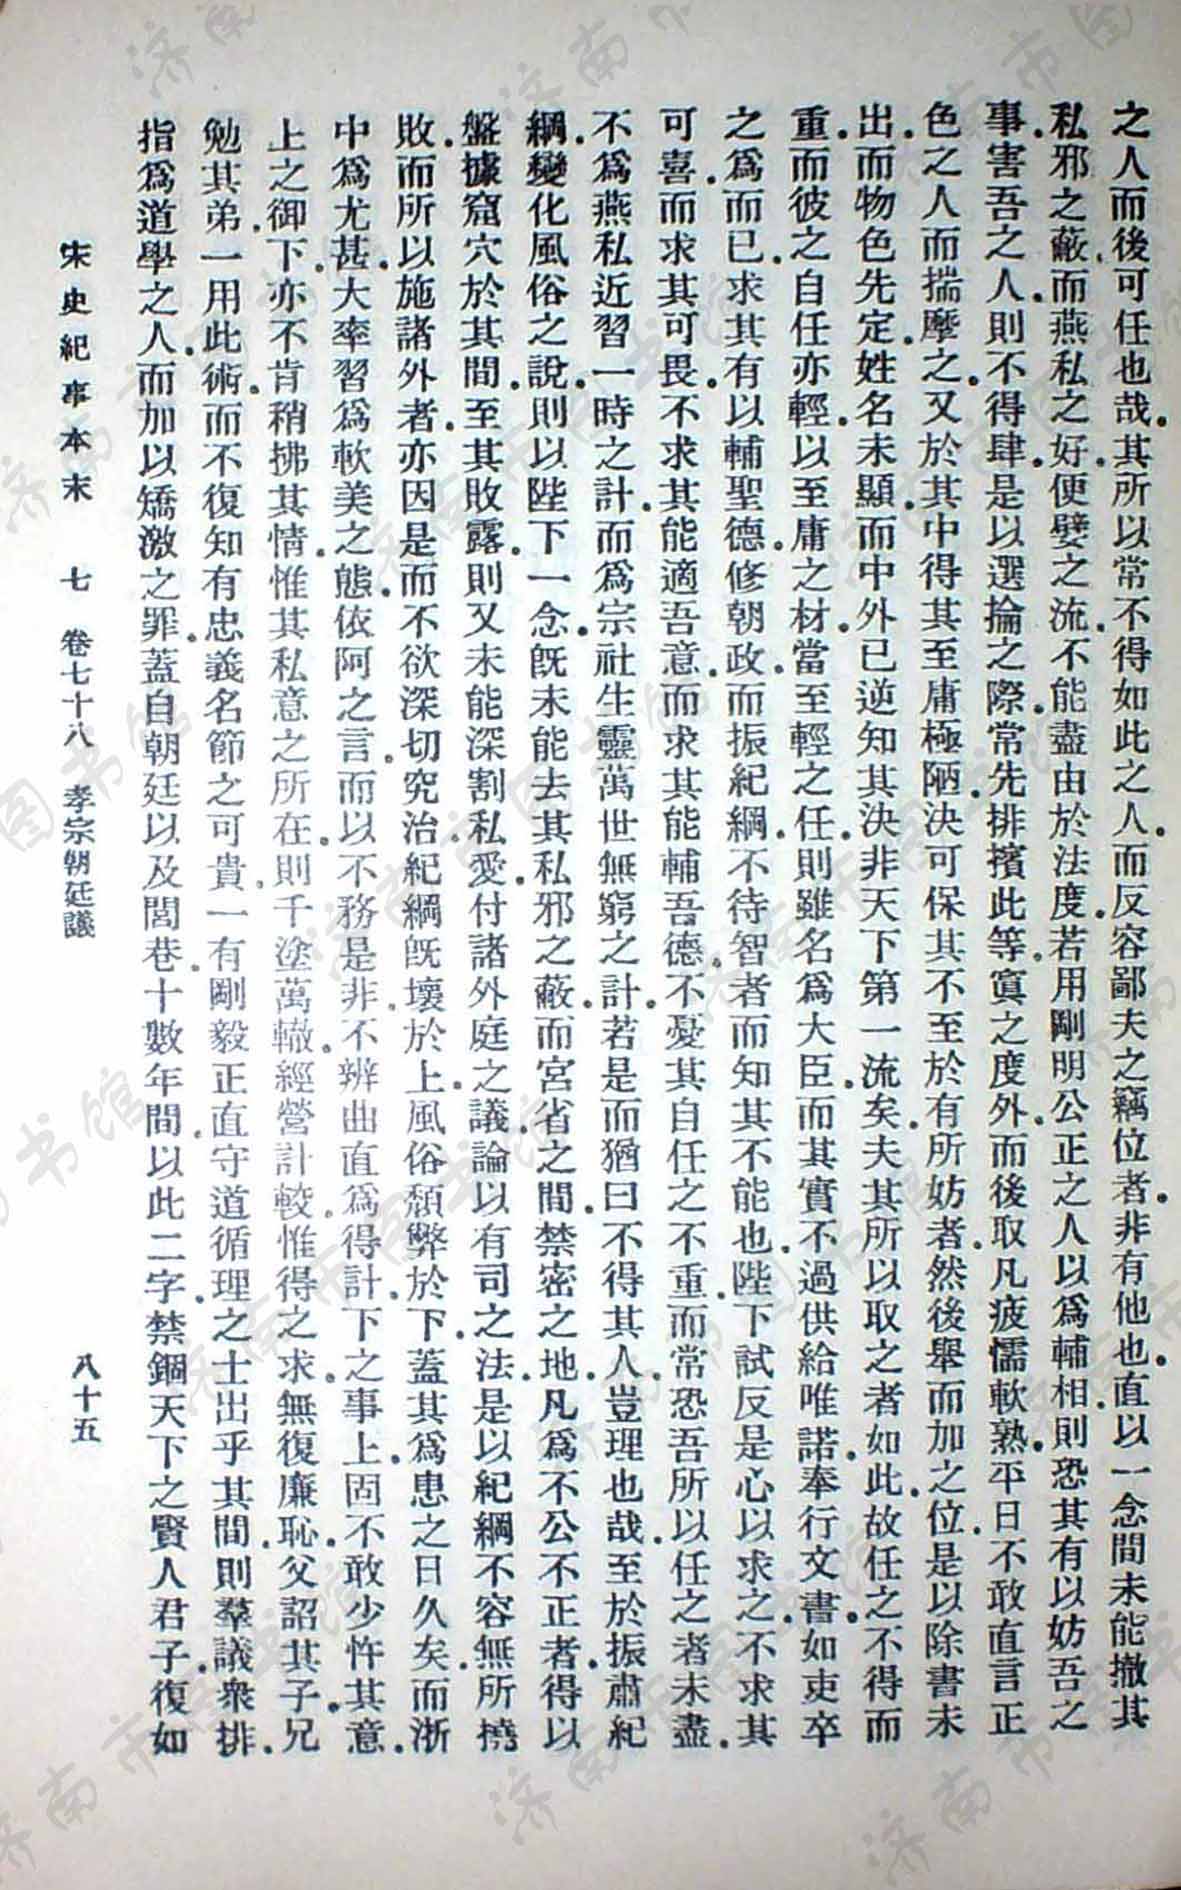 之人而後可任也哉.其所以常不得如此之人.而反容鄙夫之竊位者.非有他也.直以一念間未能撤其
私邪之蔽.而燕私之好.便嬖之流.不能盡由於法度.若用剛明公正之人以爲輔相.則恐其有以妨吾之
事.害吾之人.則不得肆.是以選掄之際.常先排擯此等.寘之度外.而後取凡疲懦軟熟.平日不敢直言正
色之人而揣摩之.又於其中得其至庸極陋.決可保其不至於有所妨者.然後舉而加之位.是以除書未
出.而物色先定.姓名未顯.而中外已逆知其決非天下第一流矣.夫其所以取之者如此.故任之不得而
重.而彼之自任亦輕.以至庸之材.當至輕之任.則雖名爲大臣.而其實不過供給唯諾.奉行文書.如吏卒
之爲而已.求其有以輔聖德.修朝政.而振紀綱.不待智者而知其不能也.陛下試反是心以求之.不求其
可喜.而求其可畏.不求其能適吾意.而求其能輔吾德.不憂其自任之不重.而常恐吾所以任之者未盡.
不爲燕私近習一時之計.而爲宗社生靈萬世無窮之計.若是而猶曰不得其人.豈理也哉.至於振肅紀
綱.變化風俗之說.則以陛下一念.旣未能去其私邪之蔽.而宮省之間.禁密之地.凡爲不公不正者.得以
盤據窟穴於其間.至其敗露.則又未能深割私愛.付諸外庭之議.論以有司之法.是以紀綱不容無所撓
敗.而所以施諸外者.亦因是而不欲深切究治.紀綱旣壞於上.風俗頹弊於下.蓋其爲患之日久矣.而浙
中爲尤甚.大率習爲軟美之態.依阿之言.而以不務是非.不辨曲直爲得計.下之事上.固不敢少忤其意.
上之御下.亦不肯稍拂其情.惟其私意之所在.則千塗萬轍.經營計較.惟得之求.無復廉恥.父詔其子.兄
勉其弟.一用此術.而不復知有忠義名節之可貴.一有剛毅正直守道循理之士出乎其間.則羣議衆排.
指爲道學之人.而加以矯激之罪.蓋自朝廷以及閭巷.十數年間.以此二字禁錮天下之賢人君子.復如
宋史紀事本末 七 卷七十八 孝宗朝廷議 八十五
济南市图书馆